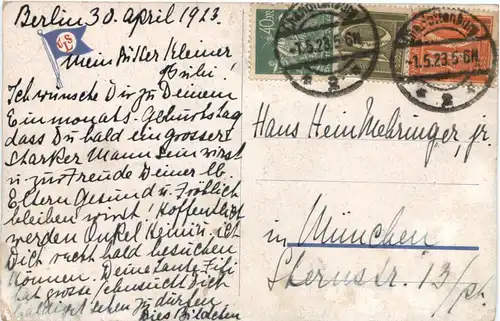 Berlin 30. April 1923.
Mein süsser kleiner
Ich wünsche Dir zu Deinem
Einmonats-Geburtstag
dass Du bald ein grosser
starker Mann sein wirst
u. zur Freude Deiner lb.
Eltern Gesund u. Fröhlich
bleiben wirst! Hoffentlich
werden Onkel u. ich
Dich recht bald besuchen
können. Deine Tante Fifi
hat grosse Sehnsucht Dich
baldigst sehen zu dürfen.
Dies Bildchen
40
Charlottenburg
-1.5.23.5-6N.
* 2 *
Charlottenburg
-1.5.23.5-6N.
* 2 *
Hans Hein Mehringer, jr.
in München
Sternstr. 13/pt.